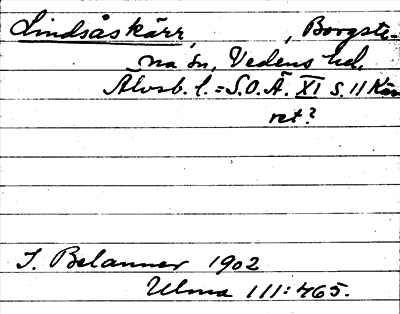 Lindsåskärr, , Borgste-
na sn, Vedens hd,
Älvsb. l. = S.O.Ä. XI s. 11 Kär
ret?
I. Belanner 1902
Ulma 111:465.